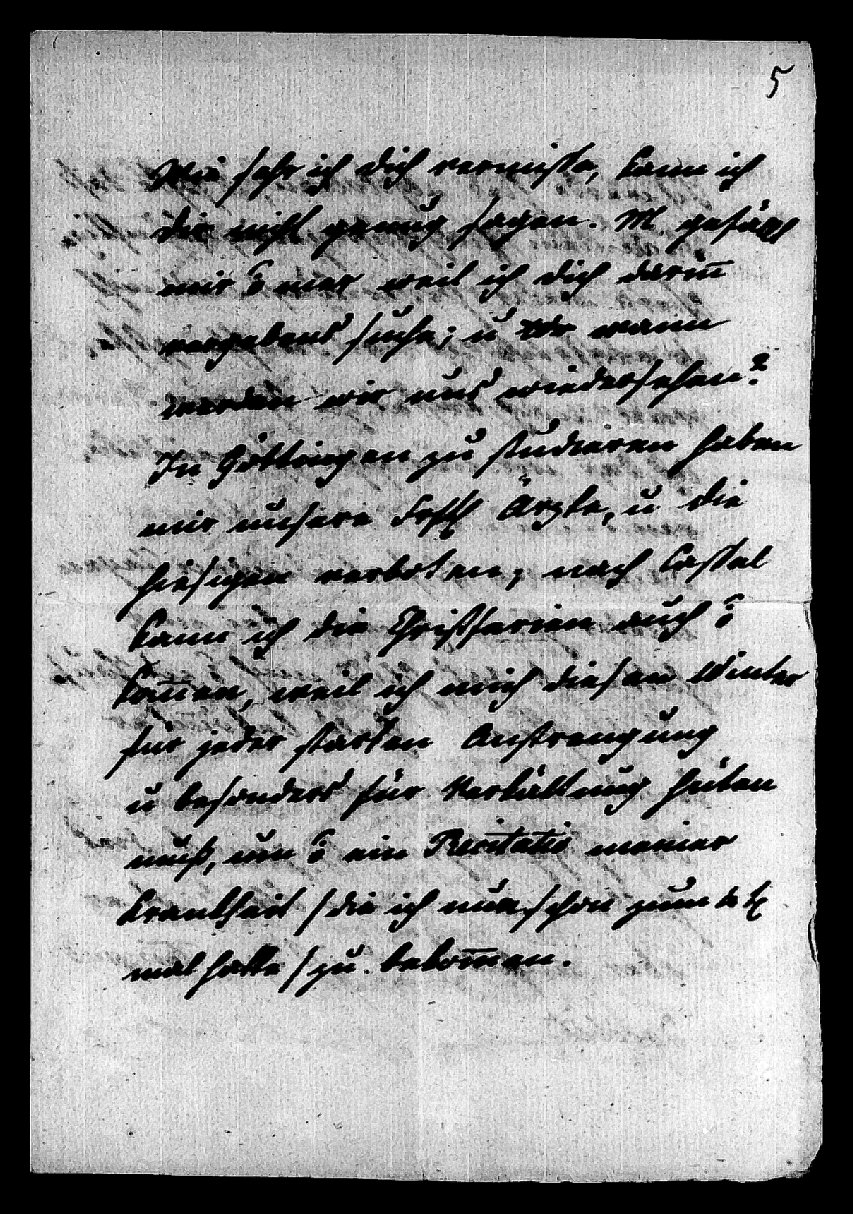 5
Wie sehr ich dich vermisse, kann ich
dir nicht genug sagen. M gefällt
mir weil ich dich darin̅
vergebens suche; u wann
werden wir uns wiedersehen?
In Göttingen zu studieren haben
mir unsere Ärzte, u die
hiesigen verboten; nach Cassel
kann ich die Christferien auch
kom̅en, weil ich mich diesen Winter
für jeder starken Anstrengung
u besonders für Verkältung hüten
muß, um ein Recitativ meiner
Krankheit /die ich nun schon zum
mal hatte/ zu bekom̅en.